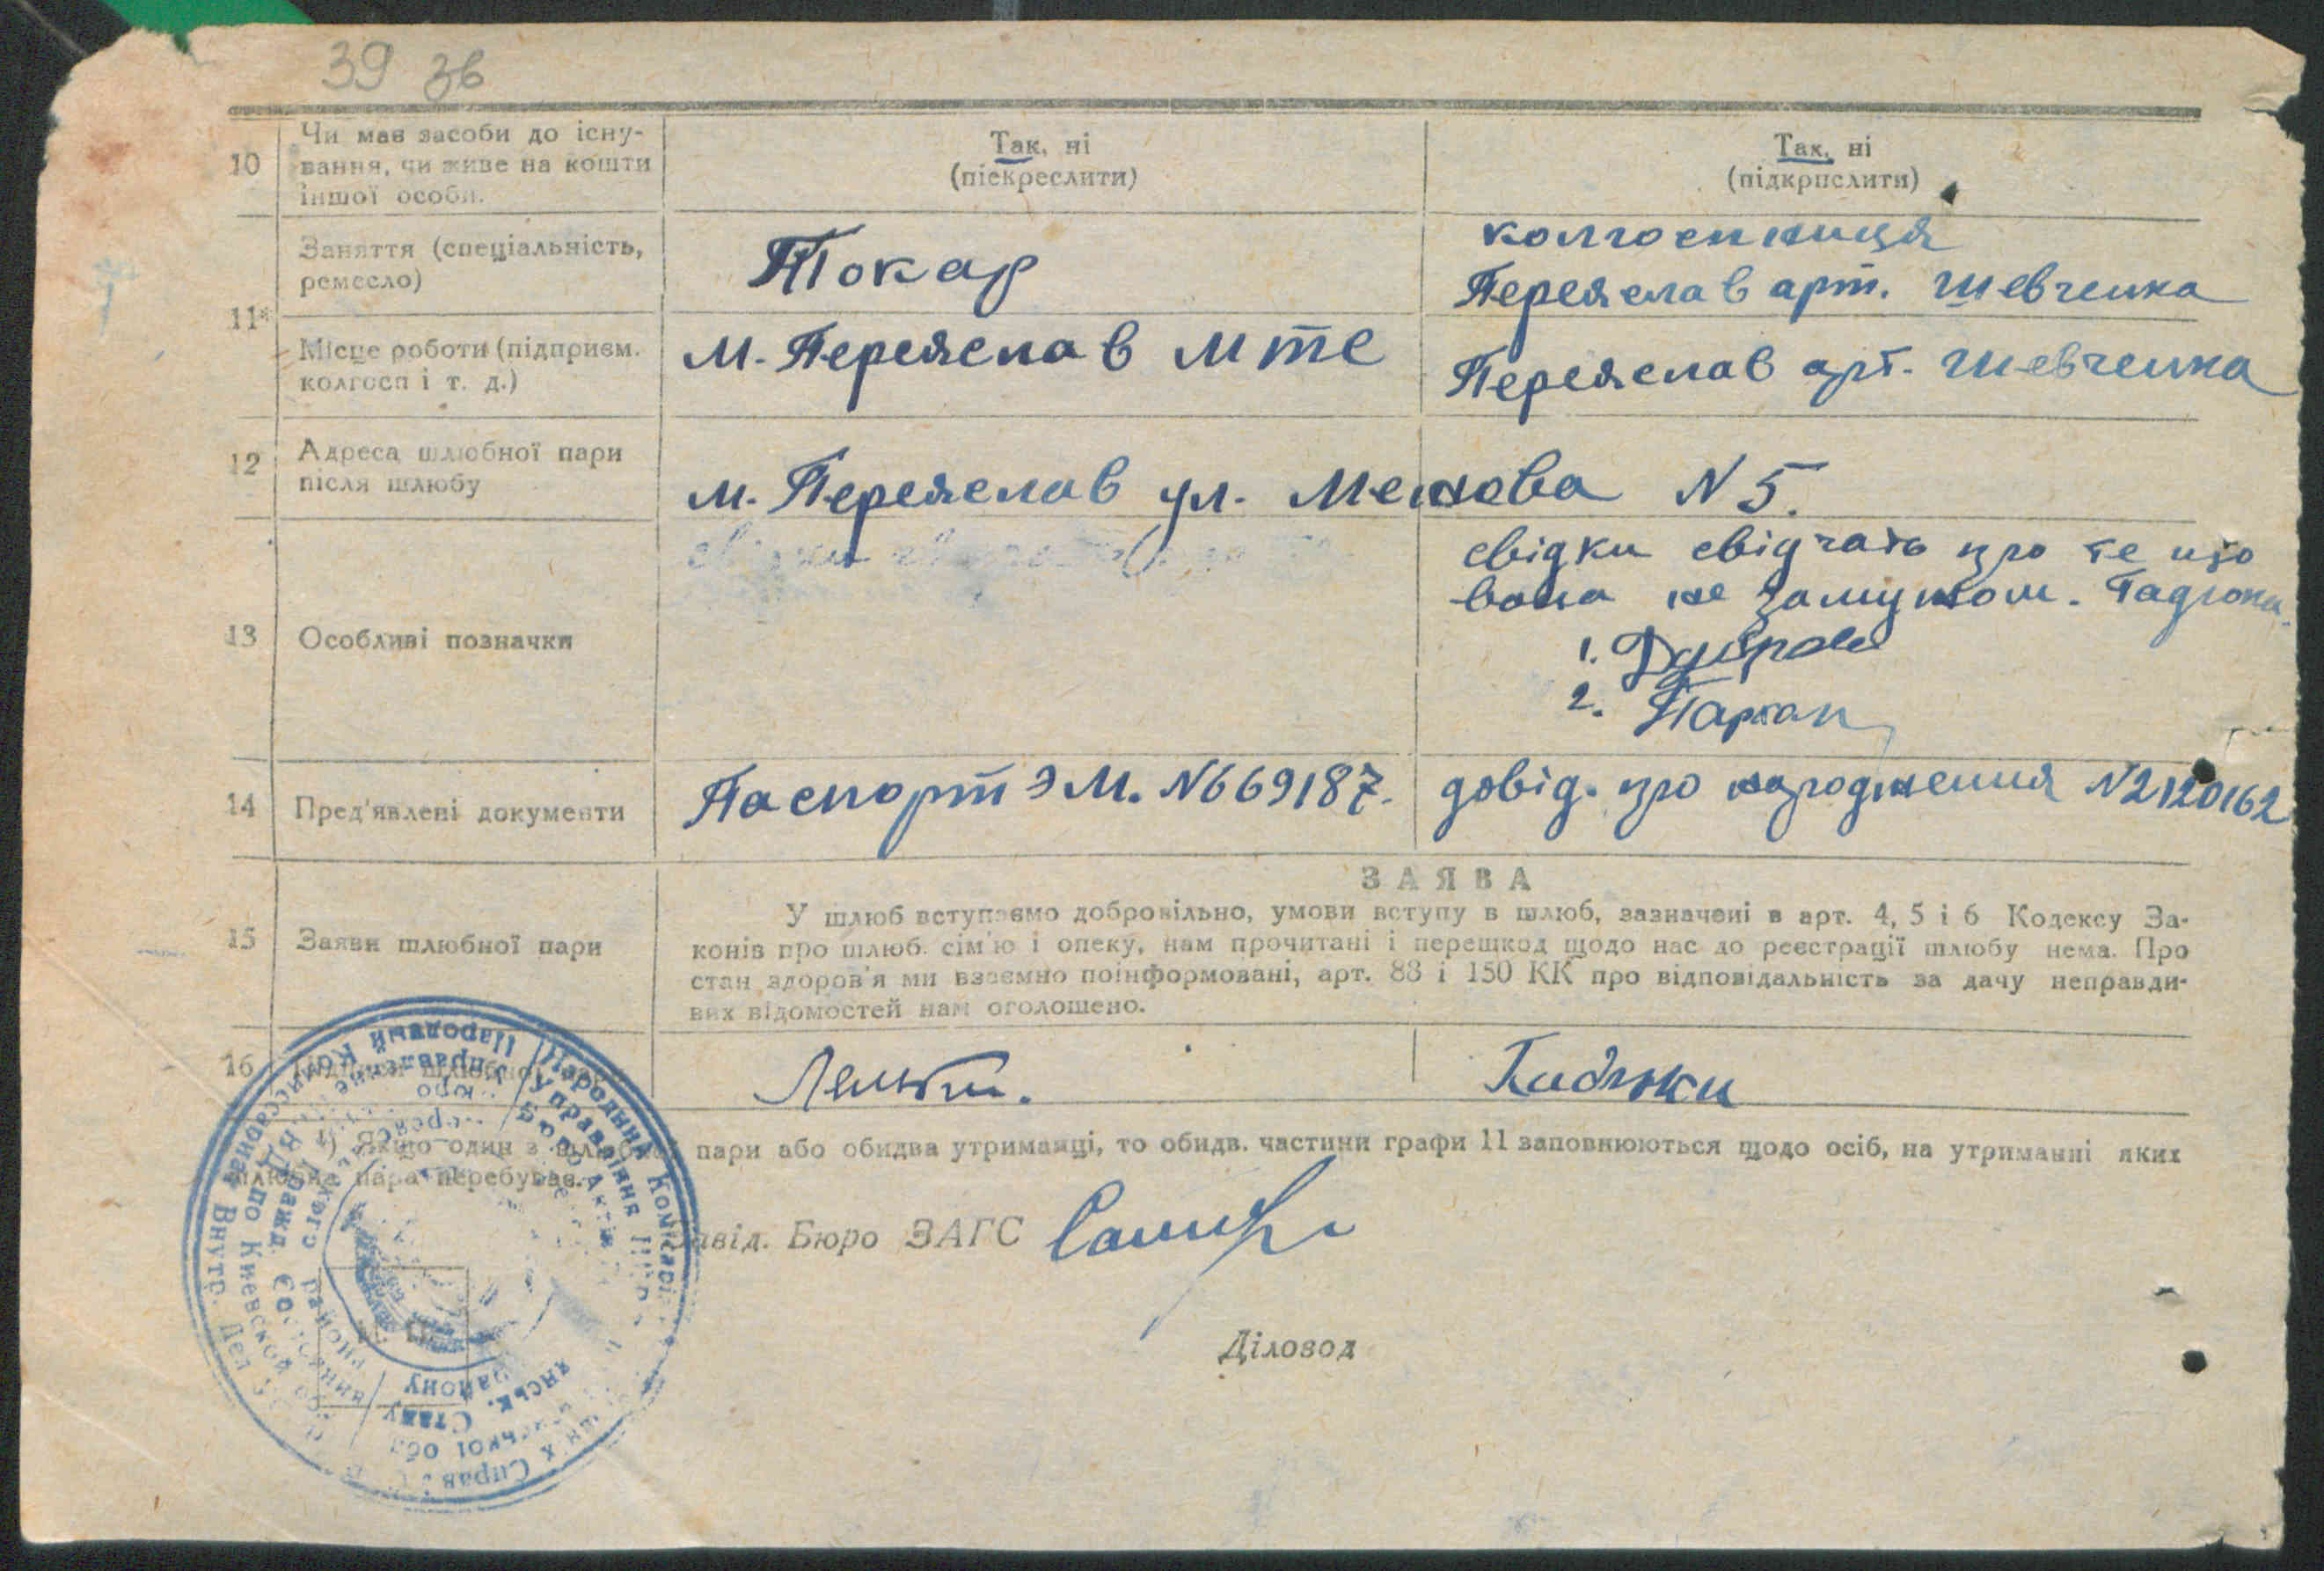 39 зв
10
Чи має засоби до існу-
вання, чи живе на кошти
іншої особи.
Так, ні
(піскреслити)
Так, ні
(підкрпслити)
11*
Заняття (спеціальність,
ремесло)
Токар
колгоспниця
Переяслав арт. Шевченка
Місце роботи (підприєм.
колгосп і т. д.)
м. Переяслав МТС
Переяслав арт. Шевченка
12
Адреса шлюбної пари
після шлюбу
м. Переяслав ул. N 5.
13
Особливі позначки
свідки свідчать про те що
вона не замужом. Гадюка
1.
2. Паркан
14
Пред'явлені документи
Паспорт ЭМ. N669187.
довід. про народження N2120162
15
Заяви шлюбної пари
ЗАЯВА
У шлюб вступаємо добровільно, умови вступу в шлюб, зазначені в арт. 4, 5 і 6 Кодексу За-
конів про шлюб. сім'ю і опеку, нам прочитані і перешкод щодо нас до реєстрації шлюбу нема. Про
стан здоров'я ми взаємно поінформовані, арт. 88 і 150 КК про відповідальність за дачу неправди-
вих відомостей нам оголошено.
16
Гадюка
*) Якщо один з шлюбної пари або обидва утриманці, то обидв. частини графи 11 заповнюються щодо осіб, на утриманні яких
шлюбна пара перебуває.
Завід. Бюро ЗАГС
Діловод
Народний Комісаріат
Управління
Бюро Актів
Народный Комиссариат Внутр. Дел
Управление
по Киевской обл
Гражд. Состояния
району